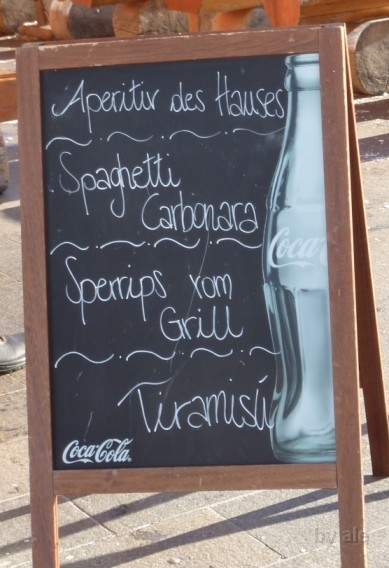 Aperitiv des Hauses
Spaghetti
Carbonara
Sperrips vom
Grill
Tiramisú
Coca-Cola
Coca-Cola
by ale